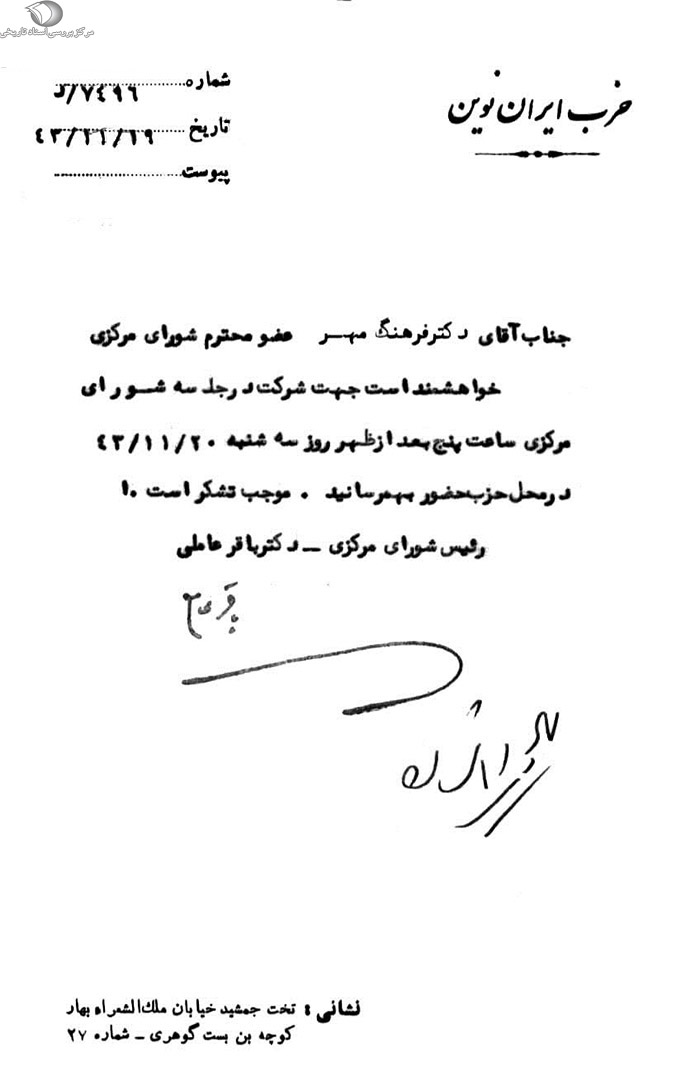 مرکز بررسی اسناد تاریخی
حزب ایران نوین
شماره ۷۴۹۶/د
تاریخ ۴۳/۱۱/۱۹
پیوست
جناب آقای دکتر فرهنگ مهر عضو محترم شورای مرکزی
خواهشمند است جهت شرکت در جلسه شورای
مرکزی ساعت پنج بعد از ظهر روز سه شنبه ۴۳/۱۱/۲۰
در محل حزب حضور بهمرسانید . موجب تشکر است .ا
رئیس شورای مرکزی – دکتر باقر عاملی
نشانی : تخت جمشید خیابان ملک‌الشعراء بهار
کوچه بن بست گوهری – شماره ۲۷